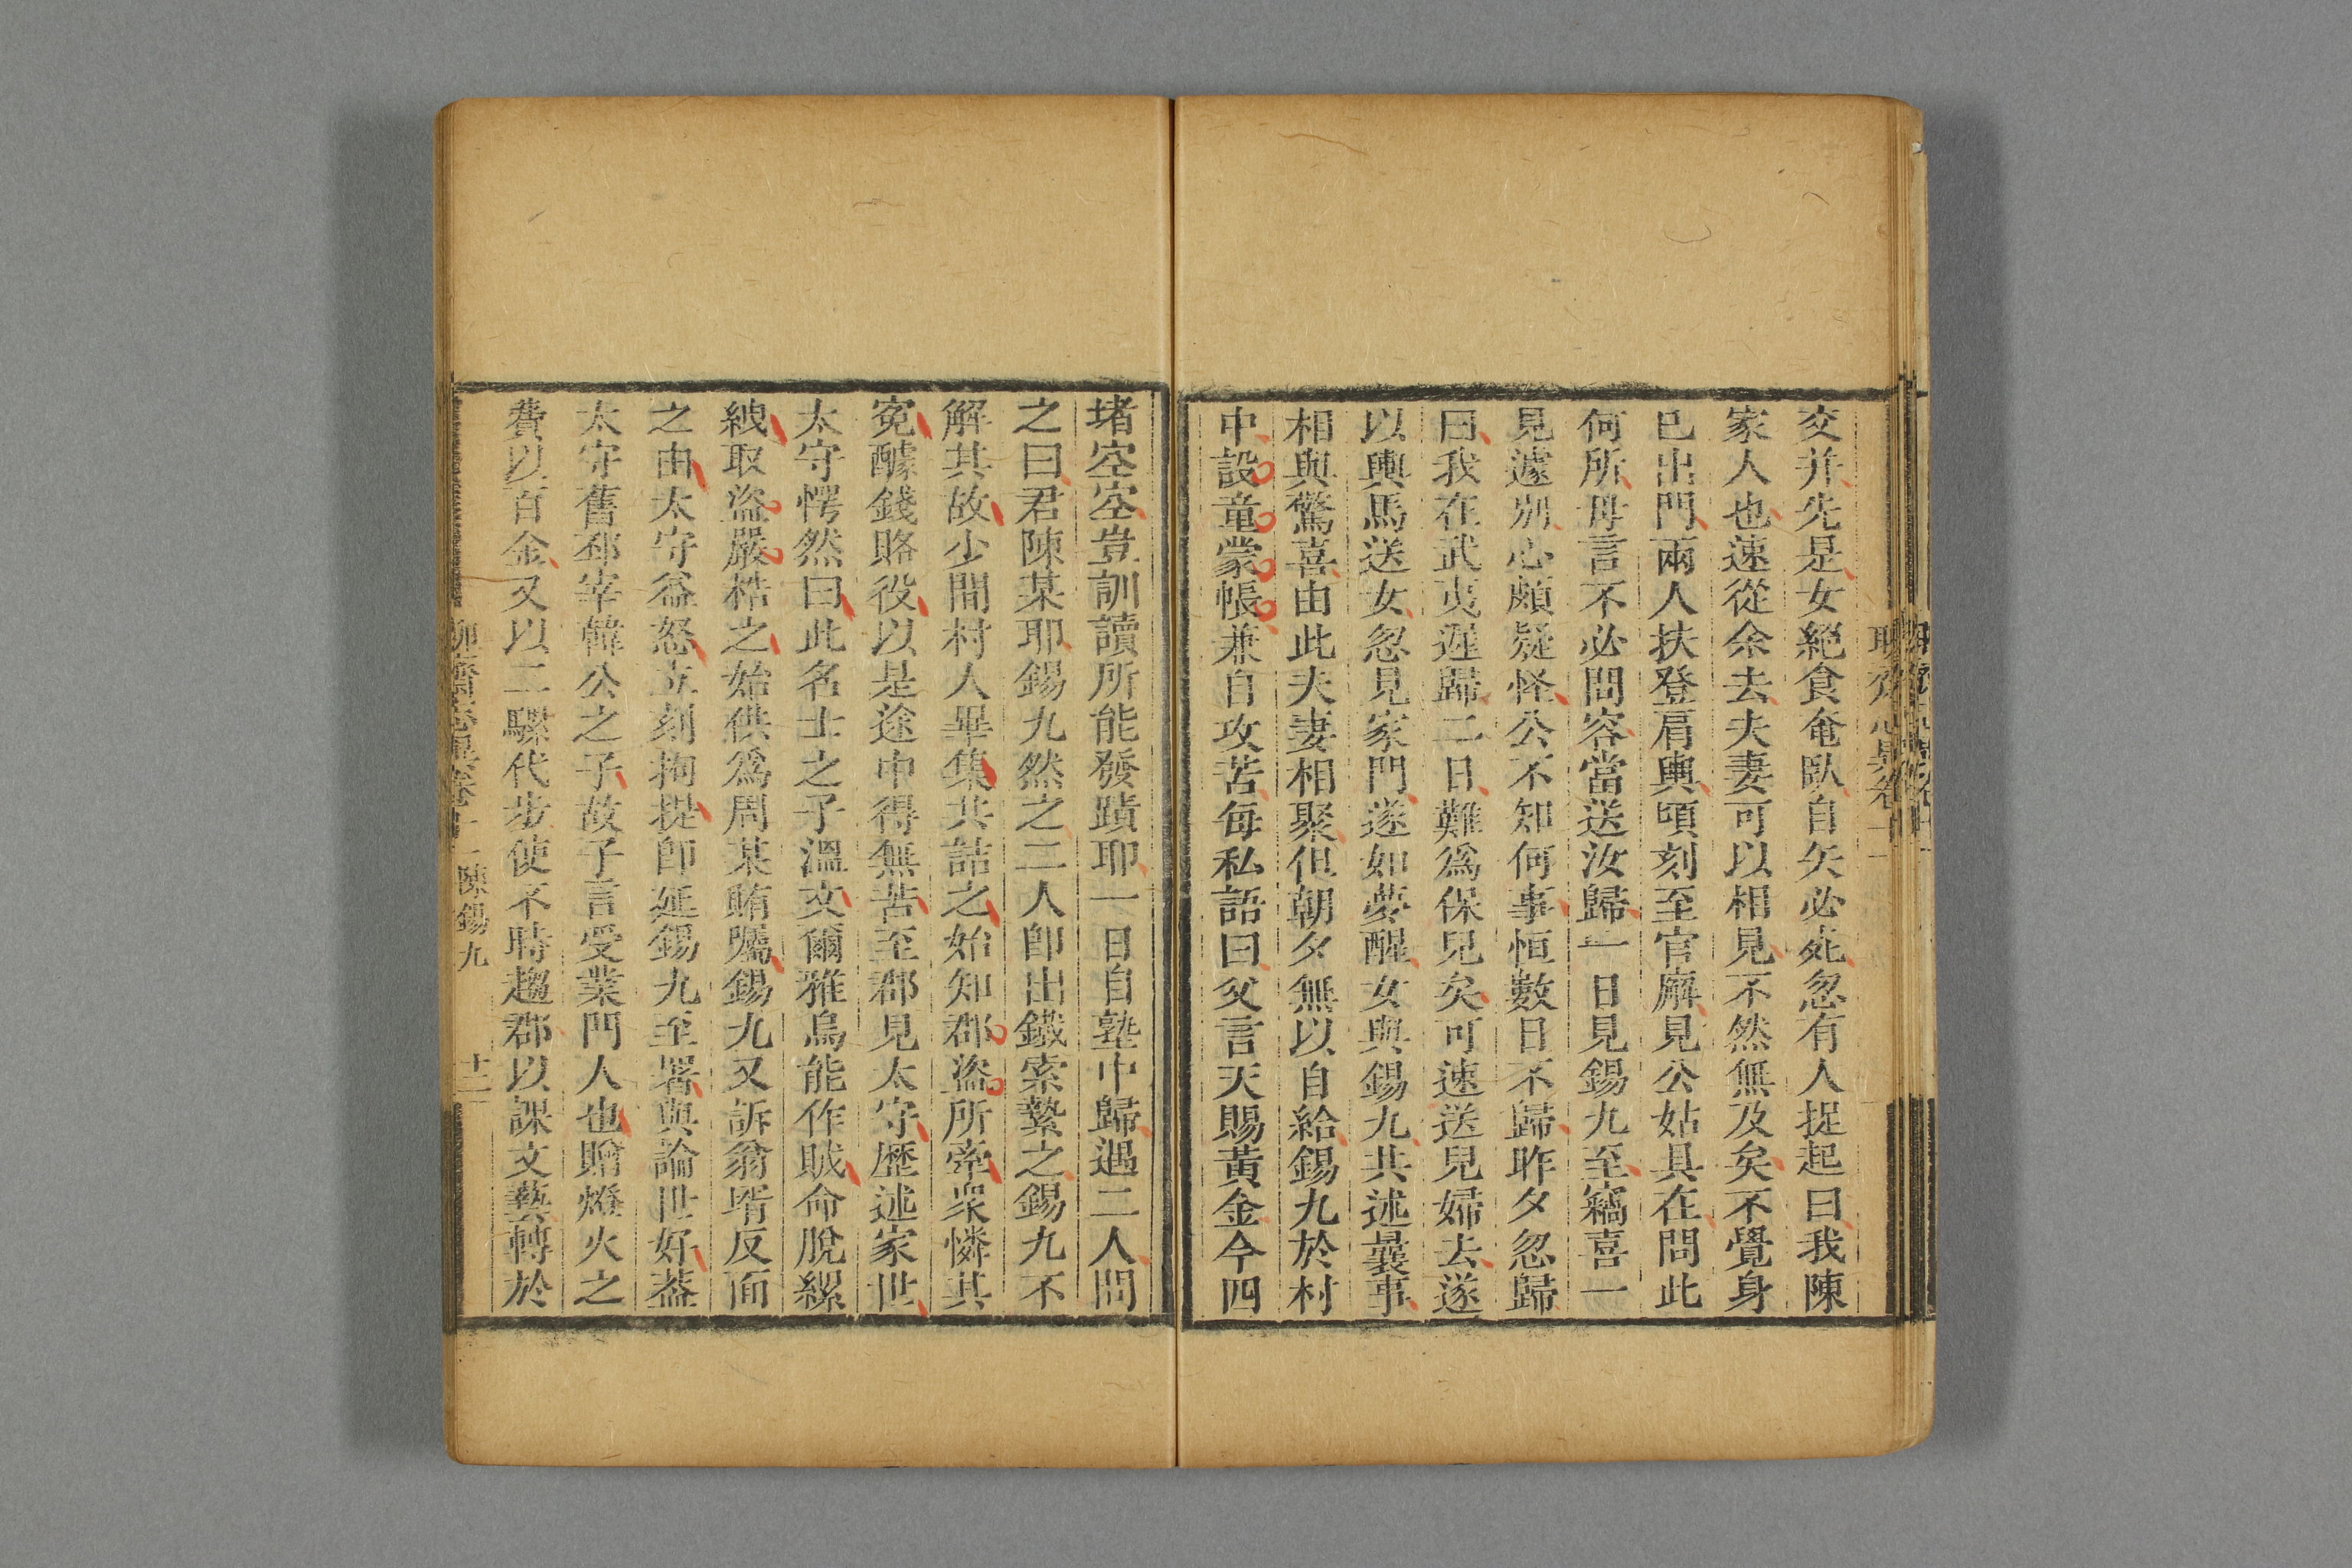 交并先是女絕食奄臥自矢必死忽有人捉起曰我陳
家人也速從余去夫妻可以相見不然無及矣不覺身
已出門兩人扶登肩輿頃刻至官廨見公姑具在問此
何所母言不必問容當送汝歸一日見錫九至竊喜一
見遽別心頗疑怪公不知何事恒數日不歸昨夕忽歸
曰我在武夷遲歸二日難爲保兒矣可速送兒婦去遂
以輿馬送女忽見家門遂如夢醒女與錫九共述曩事
相與驚喜由此夫妻相聚但朝夕無以自給錫九於村
中設童蒙帳兼自攻苦每私語曰父言天賜黃金今四
堵空空豈訓讀所能發蹟耶一日自塾中歸遇二人問
之曰君陳某耶錫九然之二人即出鐵索縶之錫九不
解其故少間村人畢集共詰之始知郡盜所牽衆憐其
冤醵錢賂役以是途中得無苦至郡見太守歷述家世
太守愕然曰此名士之子溫文爾雅烏能作賊命脫縲
紲取盜嚴梏之始供爲周某賄囑錫九又訴翁壻反面
之由太守益怒立刻拘提即延錫九至署與論世好葢
太守舊邳宰韓公之子故子言受業門人也贈燈火之
費以百金又以二騾代步使不時趨郡以課文藝轉於
聊齋志異卷十一 陳錫九 十二